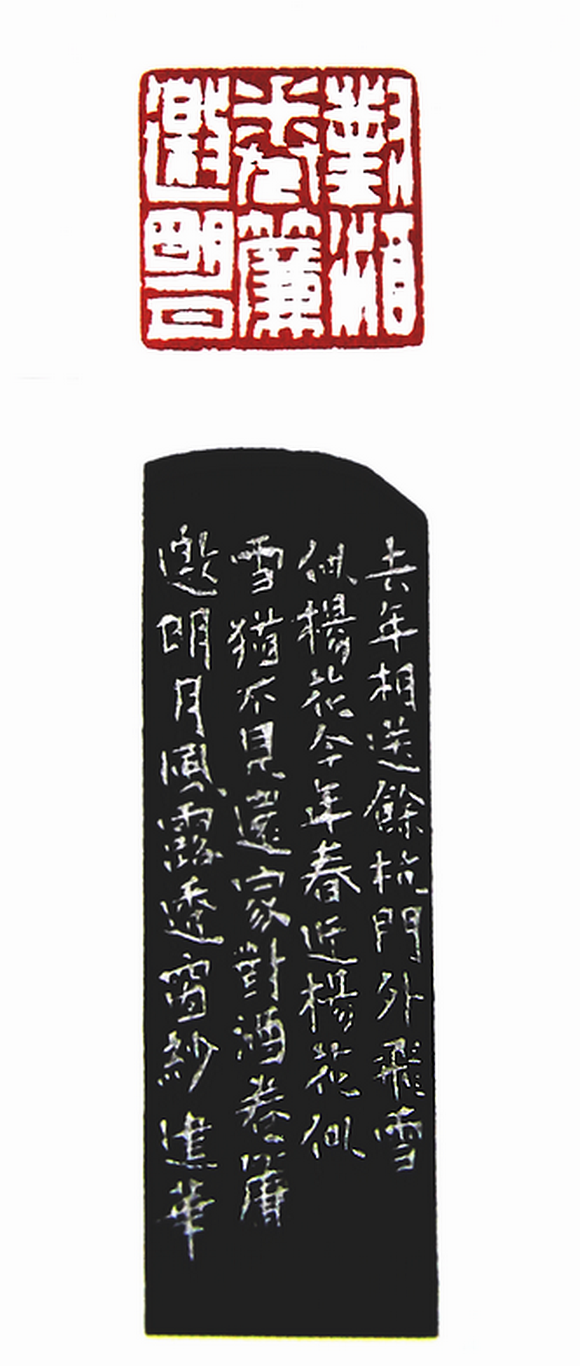 對酒
卷簾
邀明月
去年相送餘杭門外飛雪
似楊花今年春近楊花似
雪猶不見還家對酒卷簾
邀明月風露透窗紗建華